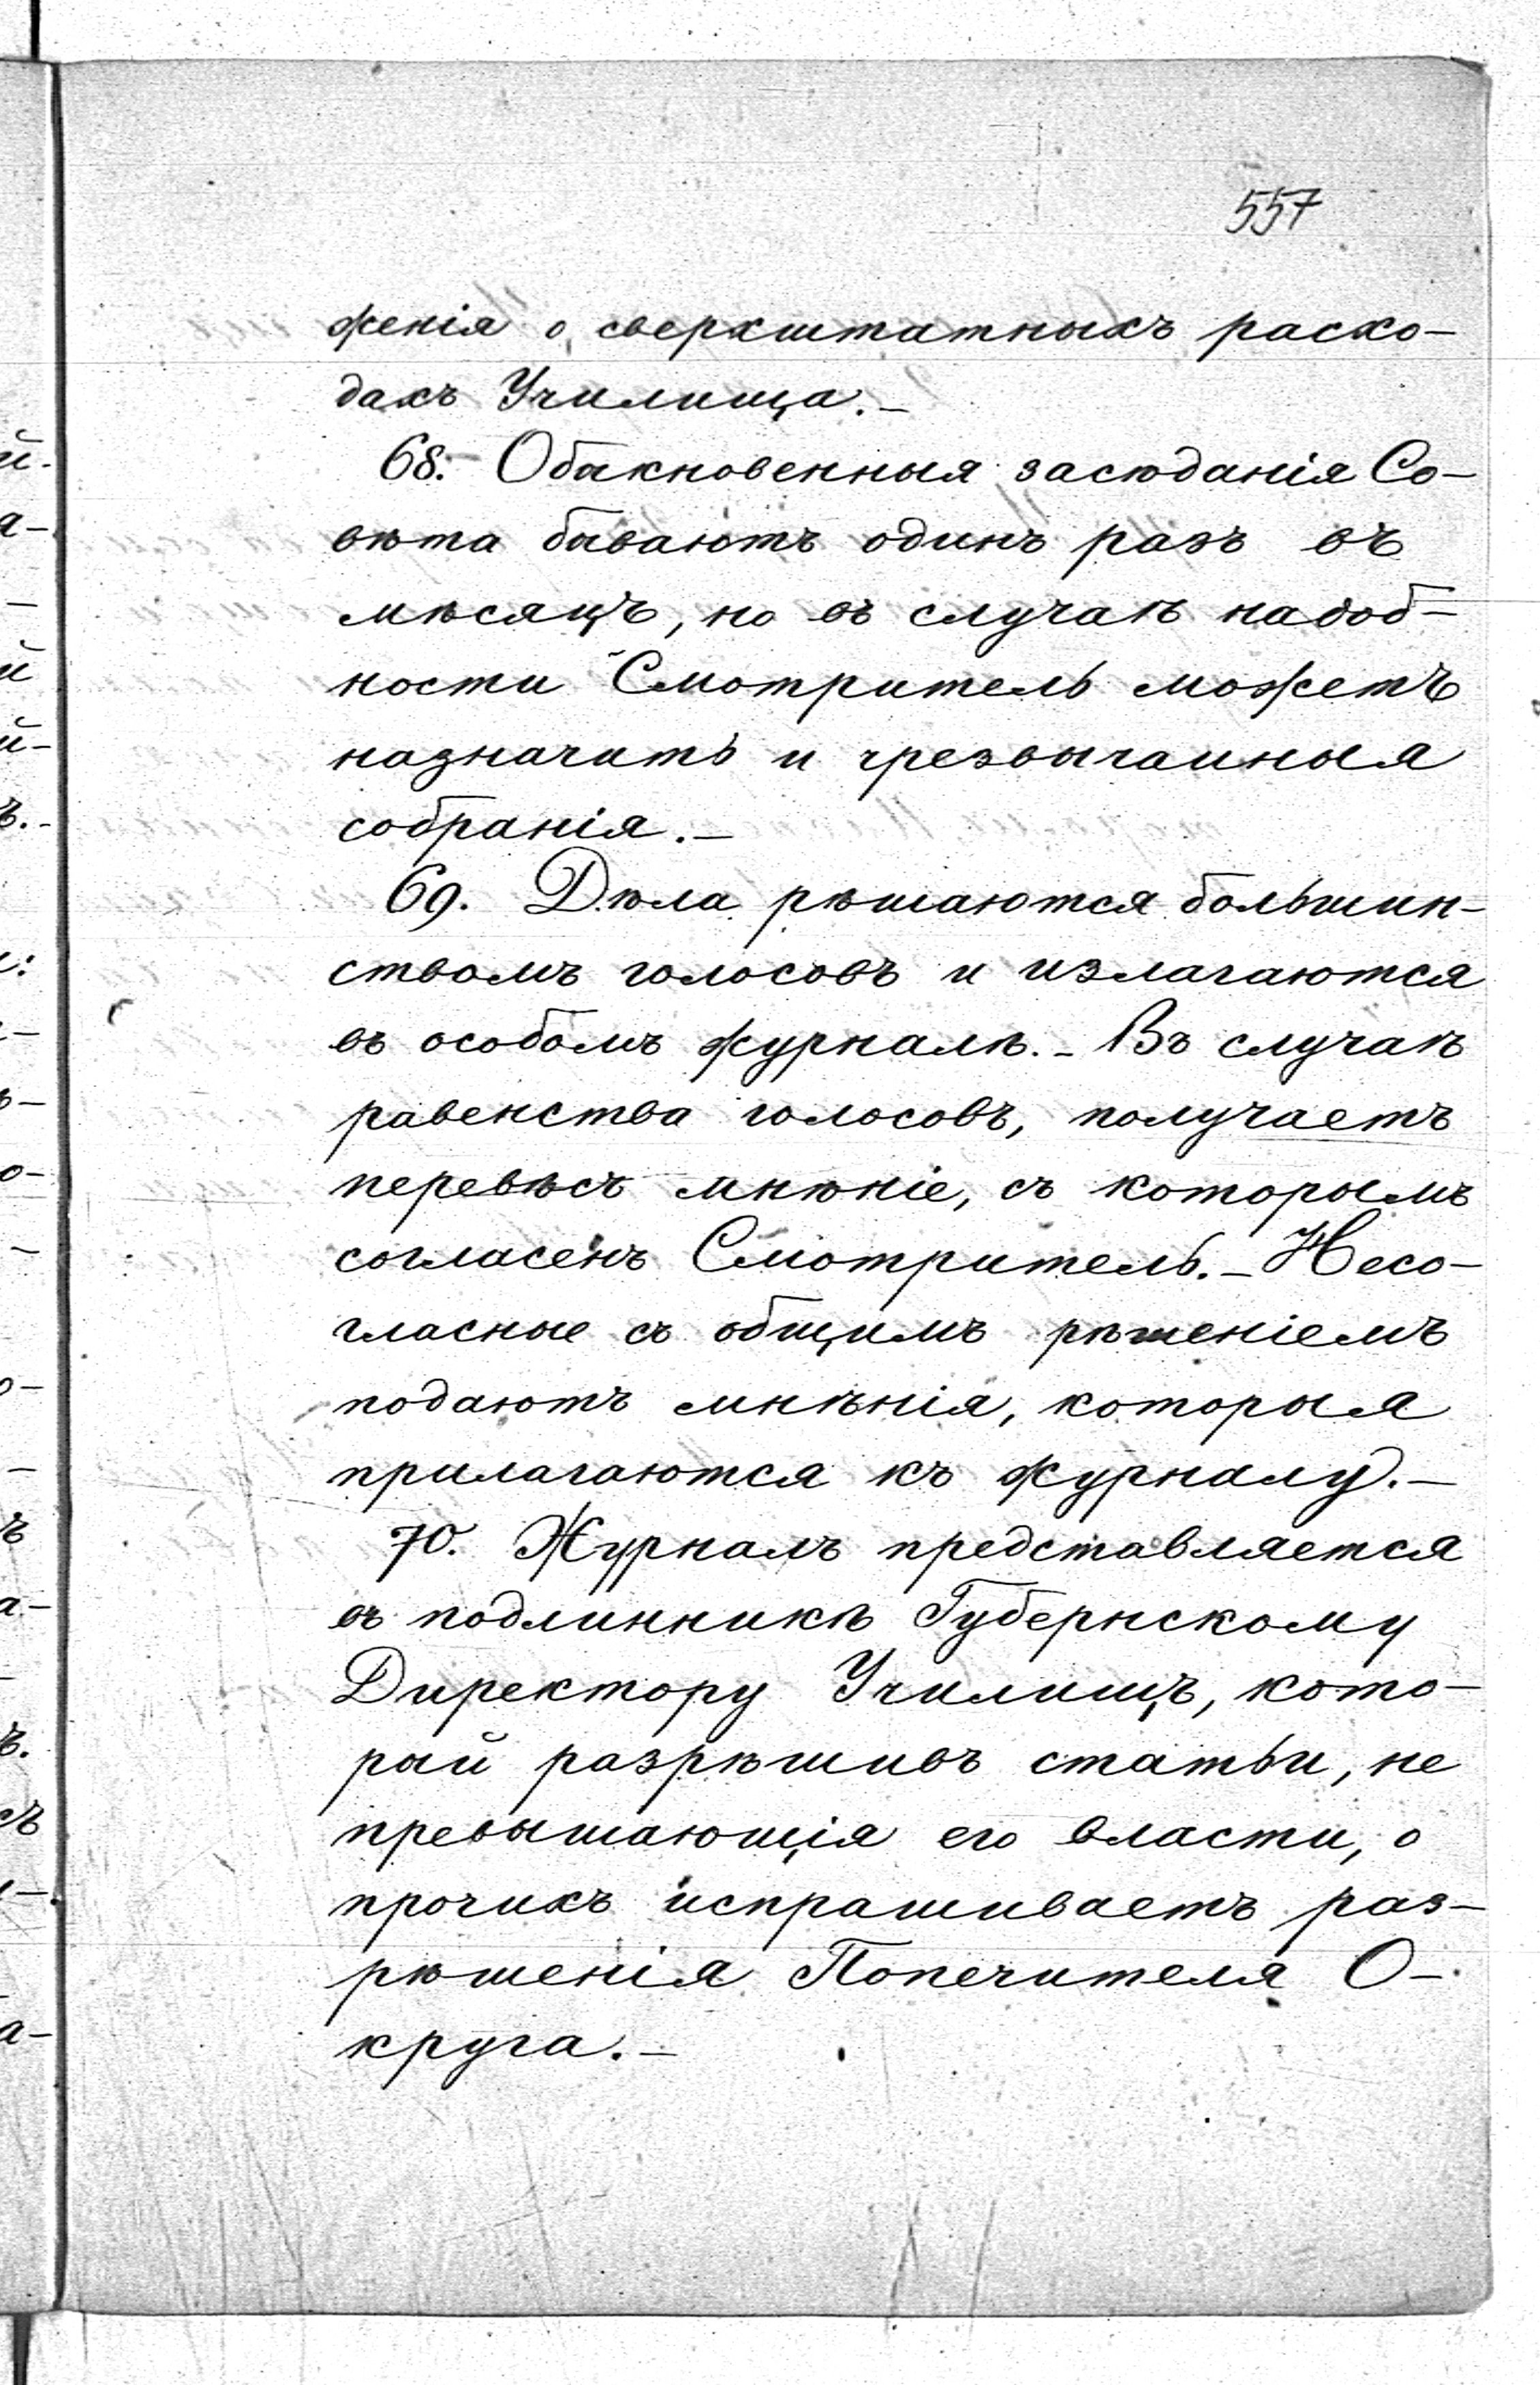 557
женія о сверхштатныхъ расхо-
дахъ Училища.-
68. Обыкновенныя засѣданія Со-
вѣта бываютъ одинъ разъ въ
мѣсяцъ, но въ случаѣ надоб-
ности Смотритель можетъ
назначить и чрезвычайныя
собранія.-
69. Дѣла рѣшаются большин-
ствомъ голосовъ и излагаются
въ особомъ журналѣ.- Въ случаѣ
равенства голосовъ, получаетъ
перевѣсъ мнѣніе, съ которымъ
согласенъ Смотритель.- Несо-
гласные съ общимъ рѣшеніемъ
подаютъ мнѣнія, которыя
прилагаются къ журналу.-
70. Журналъ представляется
въ подлинникѣ Губернскому
Директору Училищъ, кото-
рый разрѣшивъ статьи, не
превышающія его власти, о
прочихъ испрашиваетъ раз-
рѣшенія Попечителя О-
круга.-